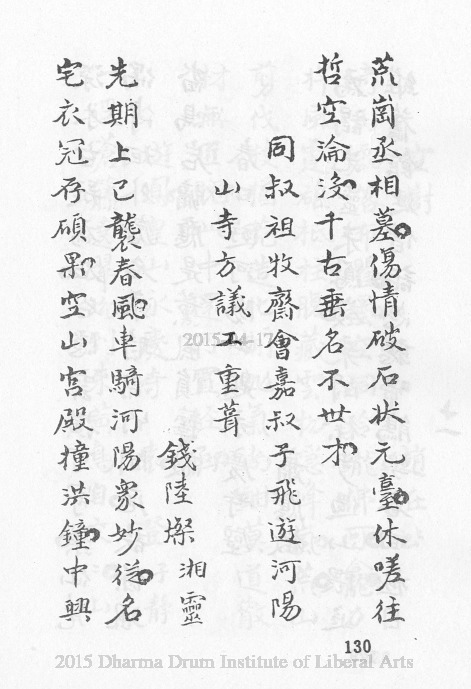 荒崗丞相墓傷情破石狀元臺休嗟往
哲空淪沒千古垂名不世才
同叔祖牧齋會嘉叔子飛遊河陽
山寺方議工重葺
錢陸燦 湘靈
先期上巳襲春風車騎河陽衆妙從名
宅衣冠存碩果空山宮殿撞洪鐘中興
130
2015 Dharma Drum Institute of Liberal Arts